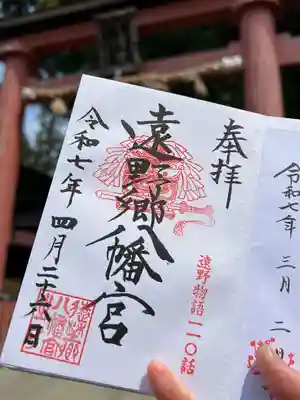 奉拝
遠野物語一一〇話
遠野郷八幡宮
令和七年四月二十六日
令和七年三月二日